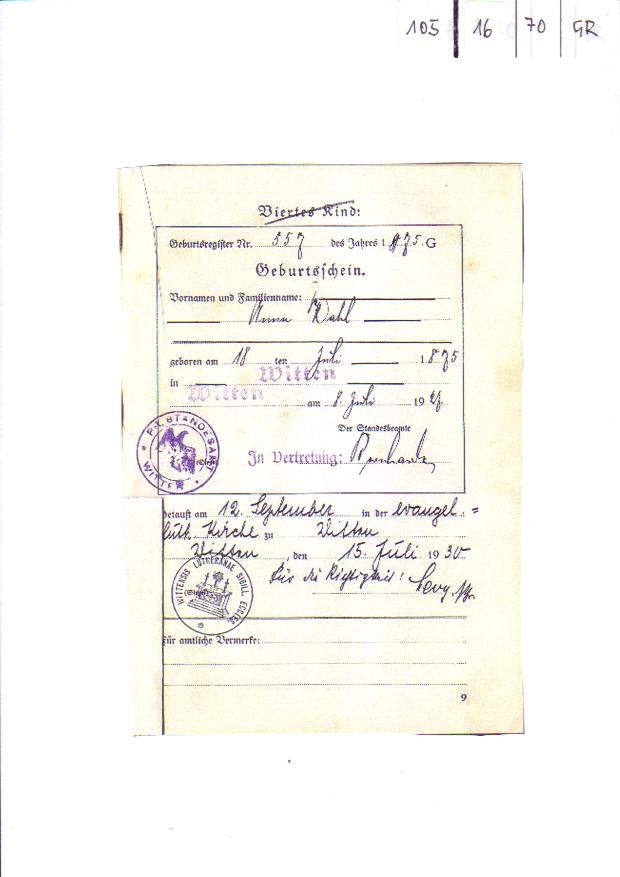 105 16 70 GR
Viertes Kind:
Geburtsregister Nr. 557 des Jahres 1875. G
Geburtsschein.
Vornamen und Familienname:
Anna Wahl
geboren am 18 ten Juli 1875
in Witten
Witten am 8. Juli 19
Der Standesbeamte
In Vertretung:
PR. STANDESAMT
WITTEN
getauft am 12. September in der evangel.=
luth. Kirche zu Witten
Witten, den 15. Juli 1930
Für die Richtigkeit:
WITTENSIS LUTHERANAE SIGILL. ECCLES.
Für amtliche Vermerke:
9